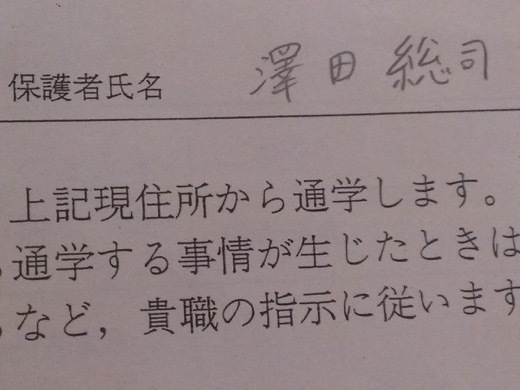 保護者氏名 澤田 総司
上記現住所から通学します。
通学する事情が生じたときは
など，貴職の指示に従います